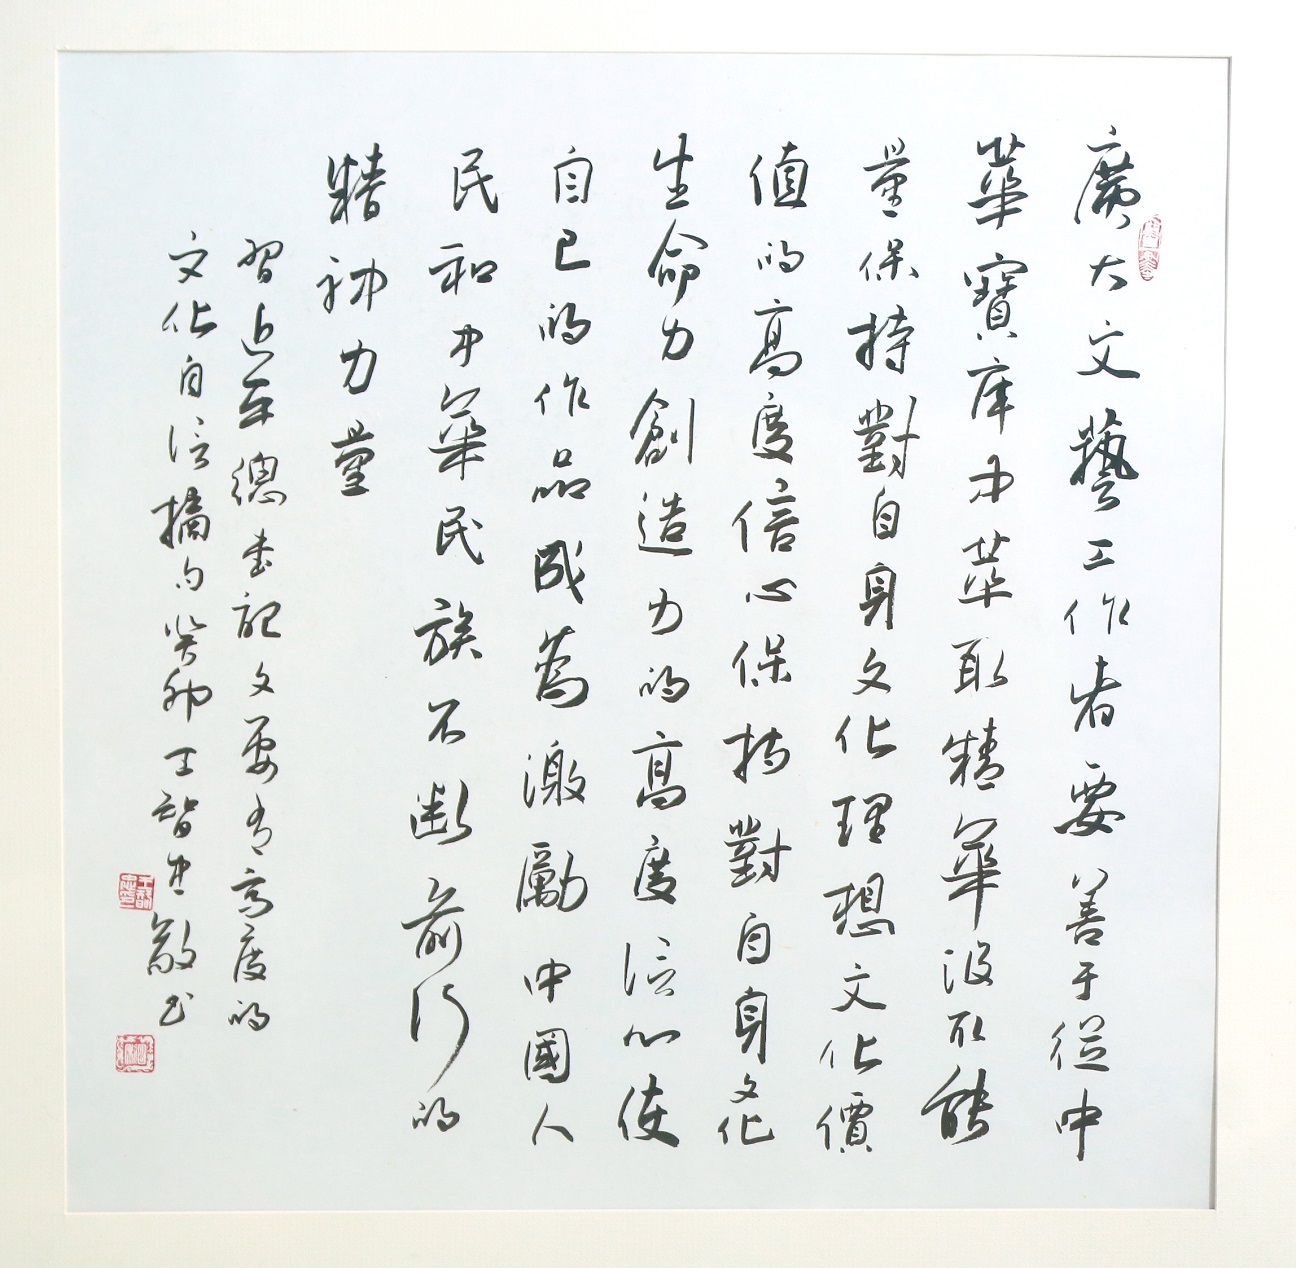 廣大文藝工作者要善于從中
華寶庫中萃取精華汲取能
量保持對自身文化理想文化價
值的高度信心保持對自身文化
生命力創造力的高度信心使
自己的作品成為激勵中國人
民和中華民族不斷前行的
精神力量
習近平總書記文要有高度的
文化自信摘句癸卯王智忠敬书